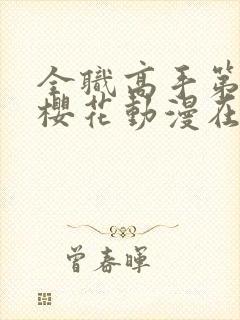 全職高手第
櫻花動漫在
曾春暉